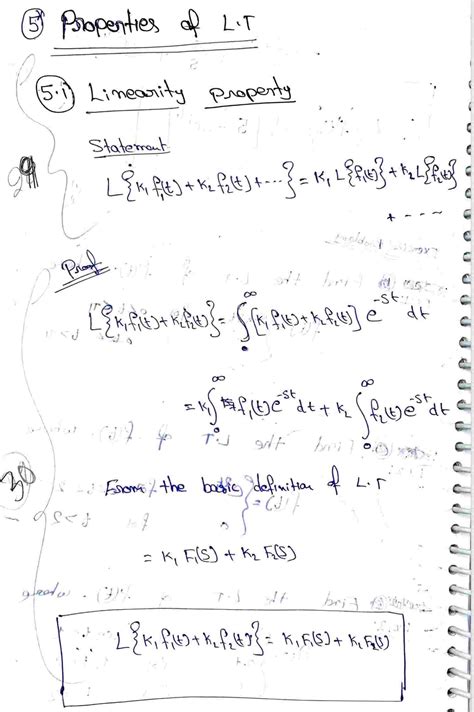 ⑤ Properties of L.T
5.1 Linearity property
Statement
L{K₁f₁(t) + K₂f₂(t) + ---} = K₁L{f₁(t)} + K₂L{f₂(t)}
+ ---
29
Proof
L{K₁f₁(t) + K₂f₂(t)} = ∫₀^∞ [K₁f₁(t) + K₂f₂(t)] e^-st dt
= K₁∫₀^∞ f₁(t) e^-st dt + K₂ ∫₀^∞ f₂(t) e^-st dt
30
From the basic definition of L.T
= K₁ F₁(S) + K₂ F₂(S)
∴ L{K₁f₁(t) + K₂f₂(t)} = K₁F₁(S) + K₂F₂(S)